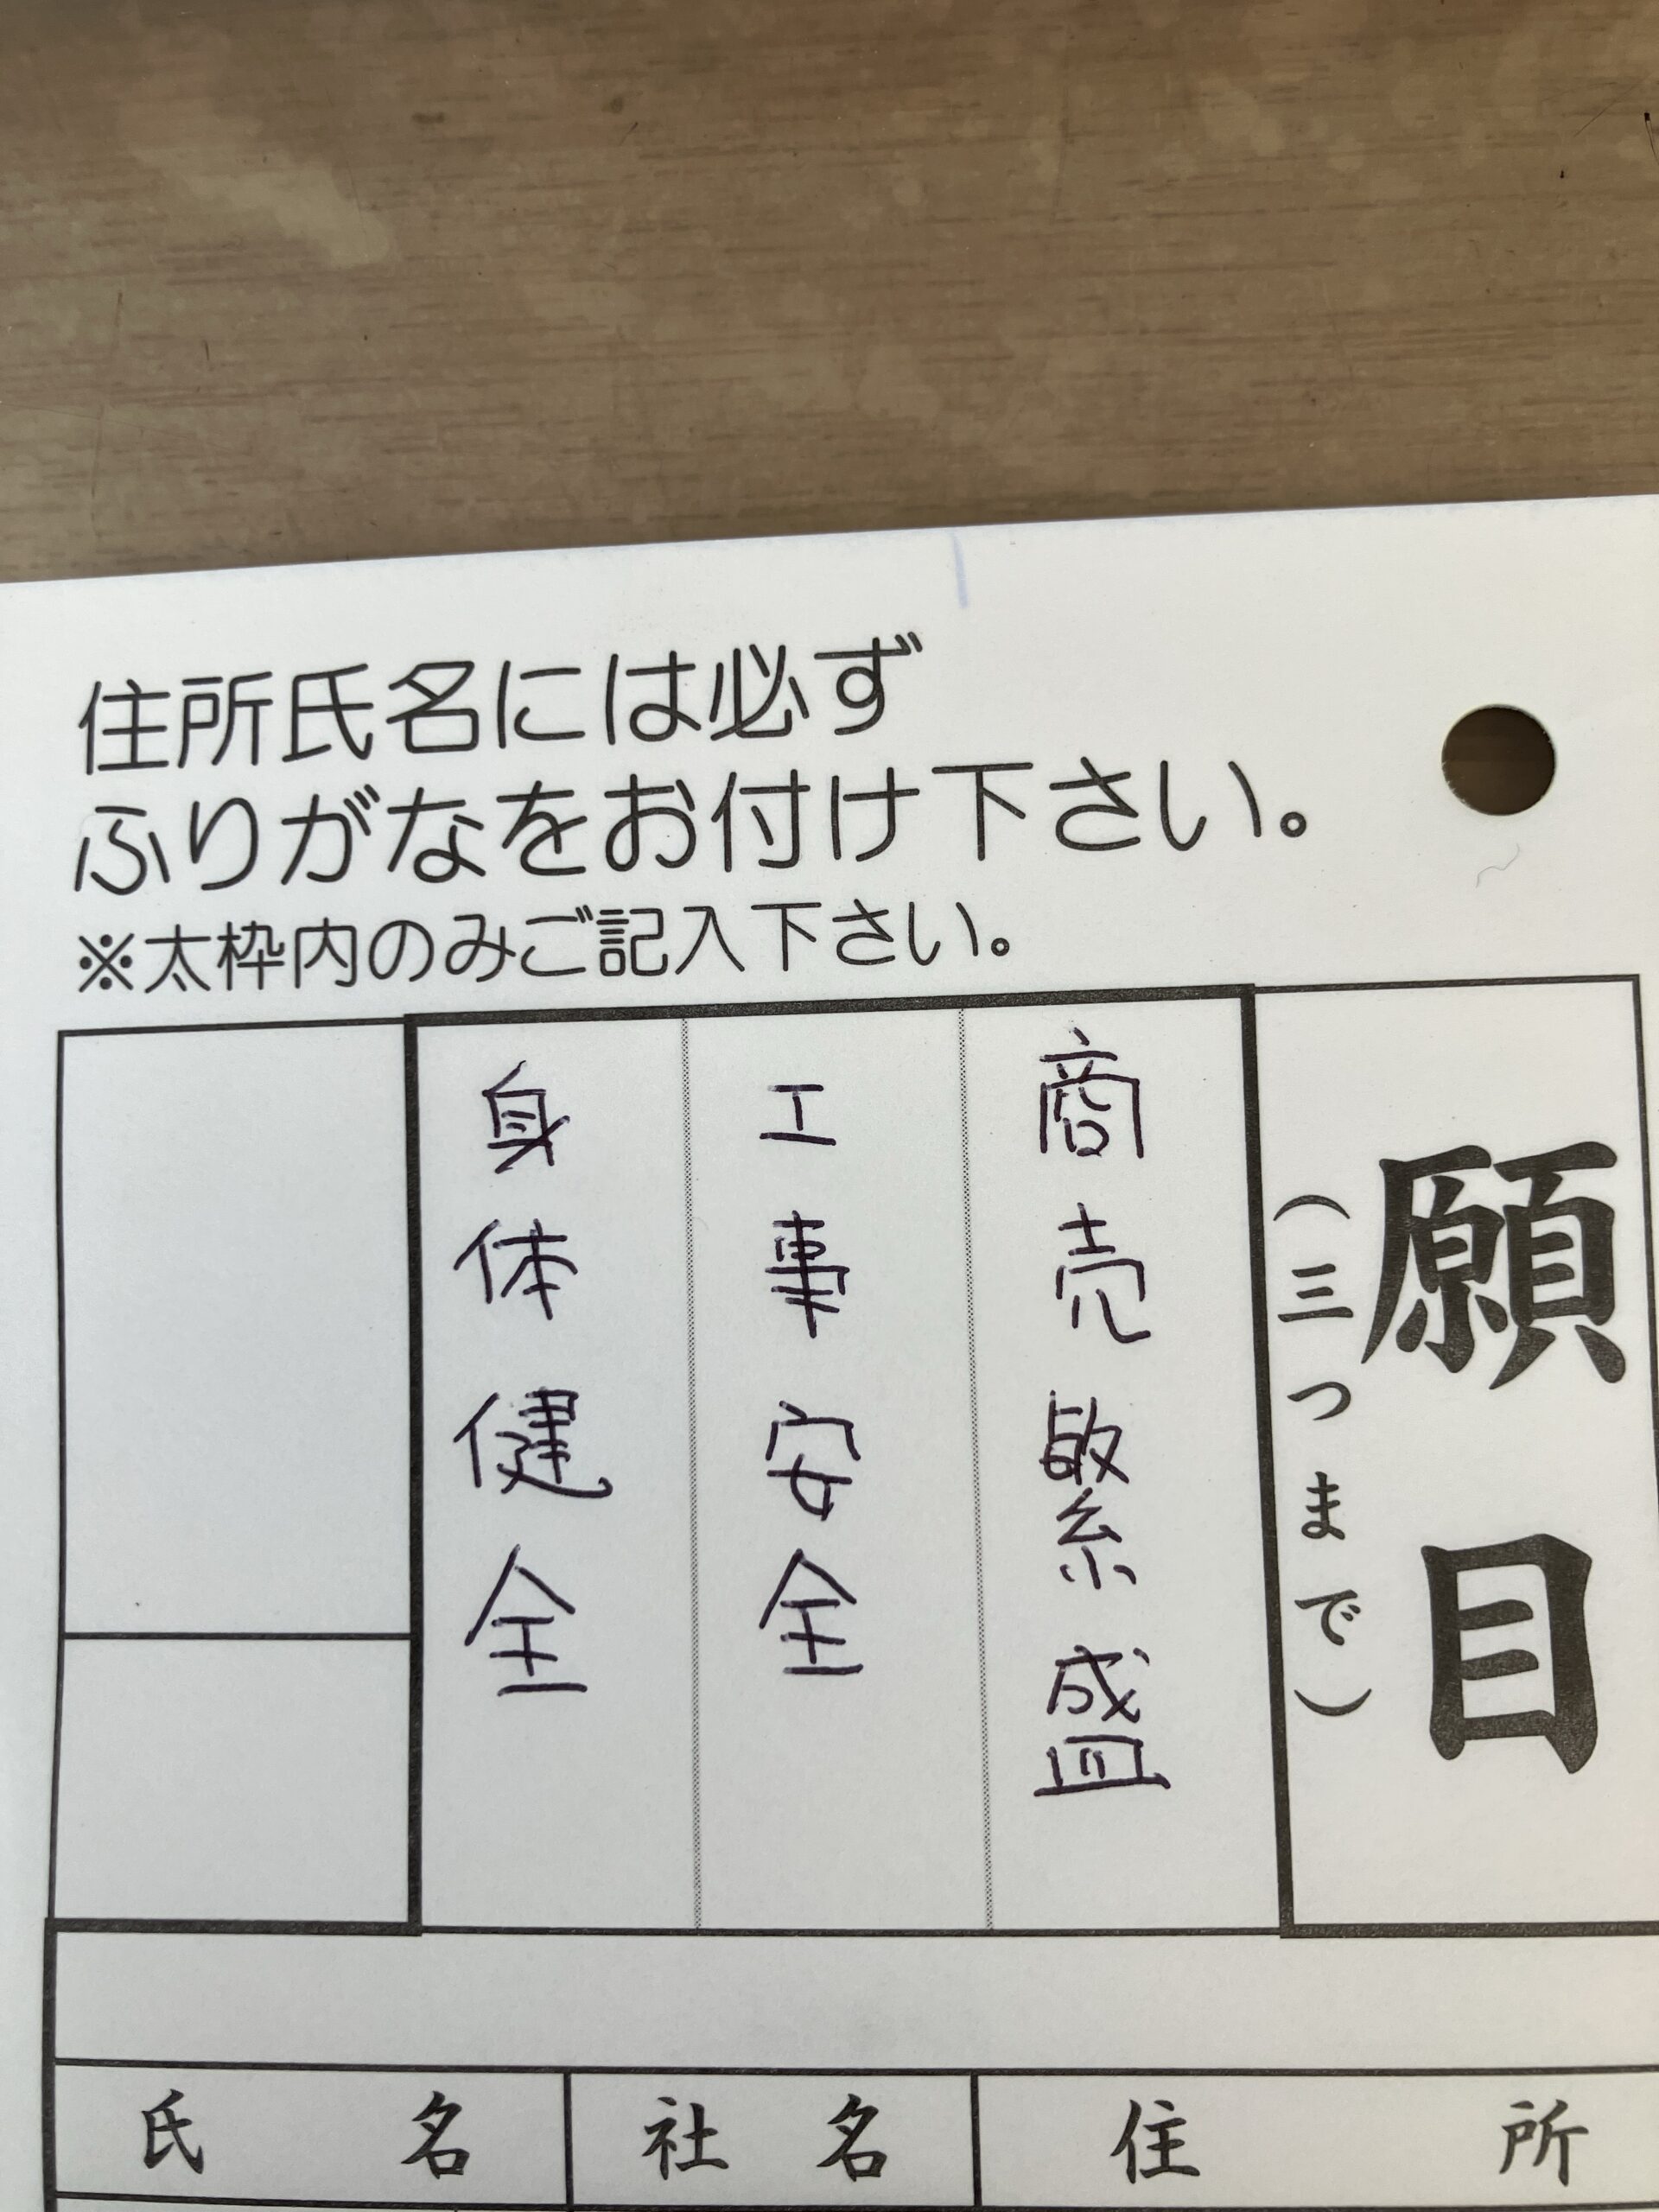 住所氏名には必ず
ふりがなをお付け下さい。
※太枠内のみご記入下さい。
願目
(三つまで)
商売繁盛
工事安全
身体健全
住所
社名
氏名